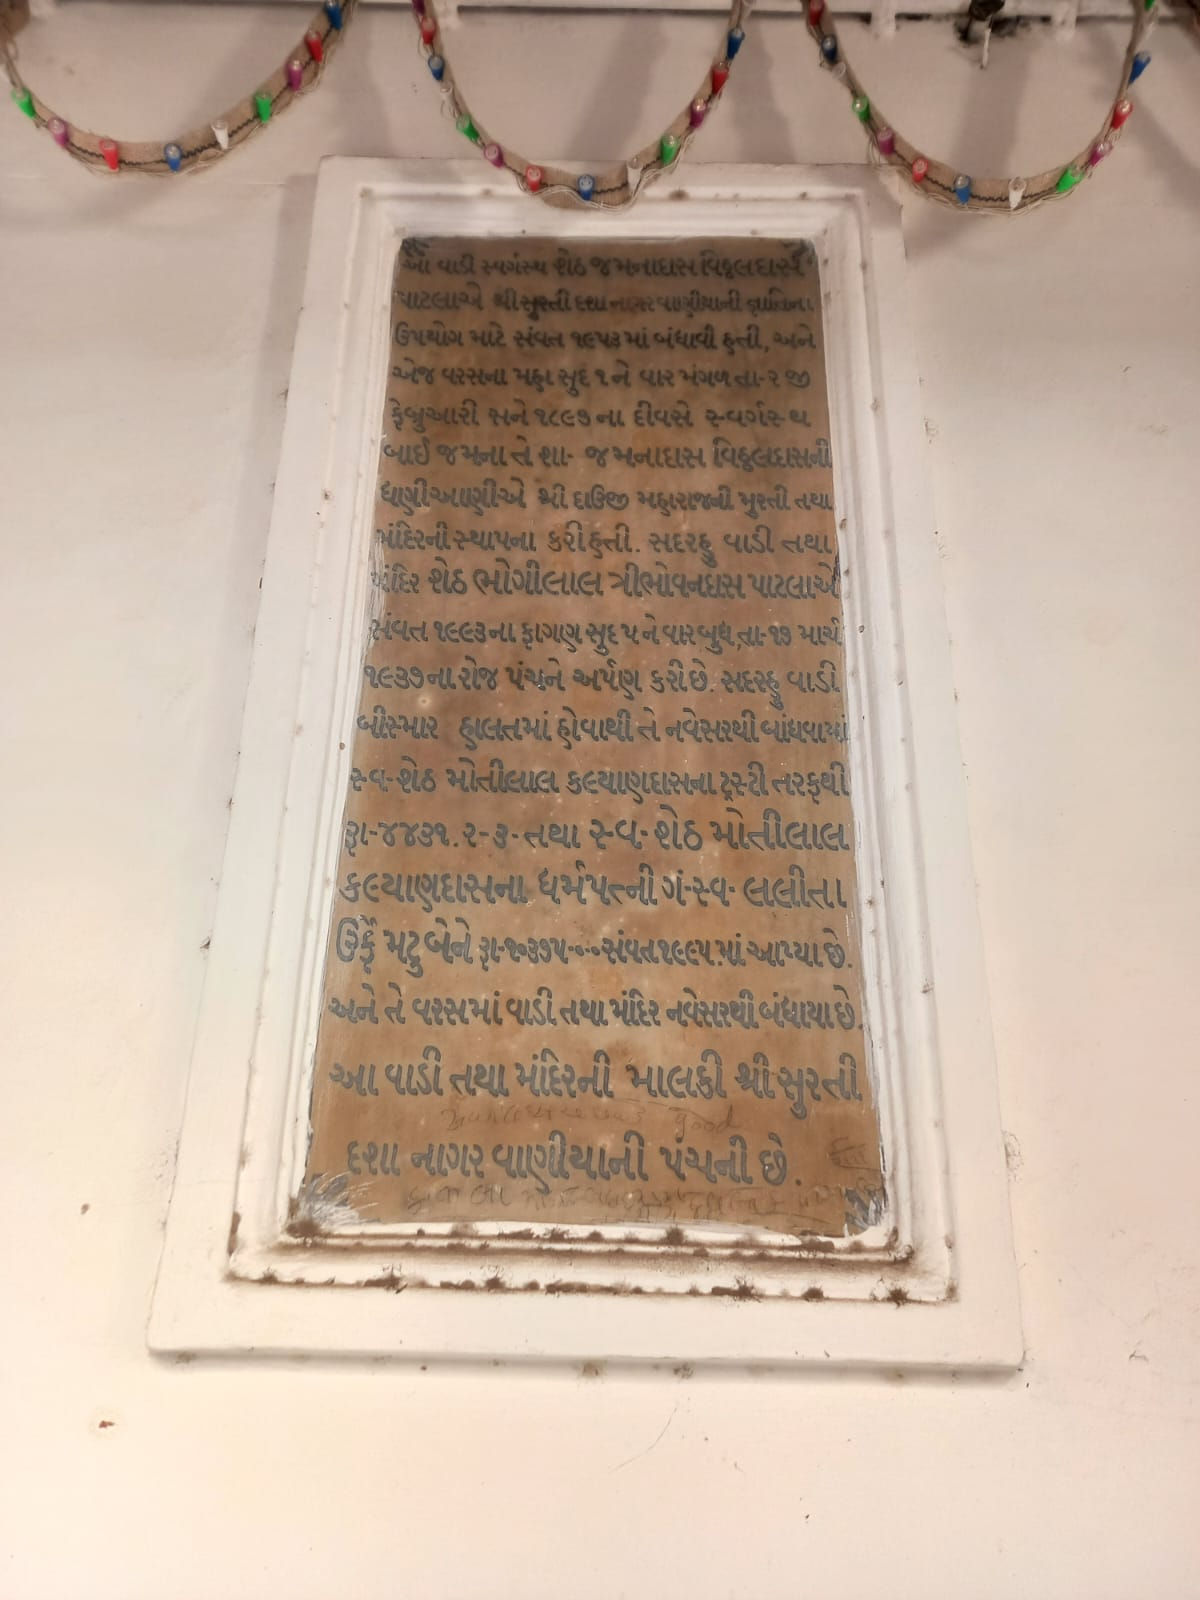 આ વાડી સ્વર્ગસ્થ શેઠ જમનાદાસ વિઠ્ઠલદાસ
પાટલાએ શ્રી સુરતી દશા નાગર વાણીયાની જ્ઞાતિના
ઉપયોગ માટે સંવત ૧૯૫૩ માં બંધાવી હતી, અને
એજ વરસના મહા સુદ ૧ ને વાર મંગળ તા-૨ જી
ફેબ્રુઆરી સને ૧૮૯૭ ના દીવસે સ્વર્ગસ્થ
બાઈ જમના તે શા- જમનાદાસ વિઠ્ઠલદાસની
ધણીઆણીએ શ્રી દાઉજી મહારાજની મુરતી તથા
મંદિરની સ્થાપના કરી હતી. સદરહુ વાડી તથા
મંદિર શેઠ ભોગીલાલ ત્રીભોવનદાસ પાટલાએ
સંવત ૧૯૯૩ ના ફાગણ સુદ ૫ ને વાર બુધ, તા-૧૭ માર્ચ
૧૯૩૭ ના રોજ પંચને અર્પણ કરી છે. સદરહુ વાડી
બીસ્માર હાલતમાં હોવાથી તે નવેસરથી બાંધવામાં
સ્વ-શેઠ મોતીલાલ કલ્યાણદાસના ટ્રસ્ટી તરફથી
રૂા-૪૪૩૧.૨-૩-તથા સ્વ-શેઠ મોતીલાલ
કલ્યાણદાસના ધર્મપત્ની ગં-સ્વ- લલીતા
ઉર્ફે મટુબેને રૂા-૧૦૩૭૫-૦-૦ સંવત ૧૯૯૫.માં આપ્યા છે.
અને તે વરસમાં વાડી તથા મંદિર નવેસરથી બંધાયા છે.
આ વાડી તથા મંદિરની માલકી શ્રી સુરતી
good
દશા નાગર વાણીયાની પંચની છે.